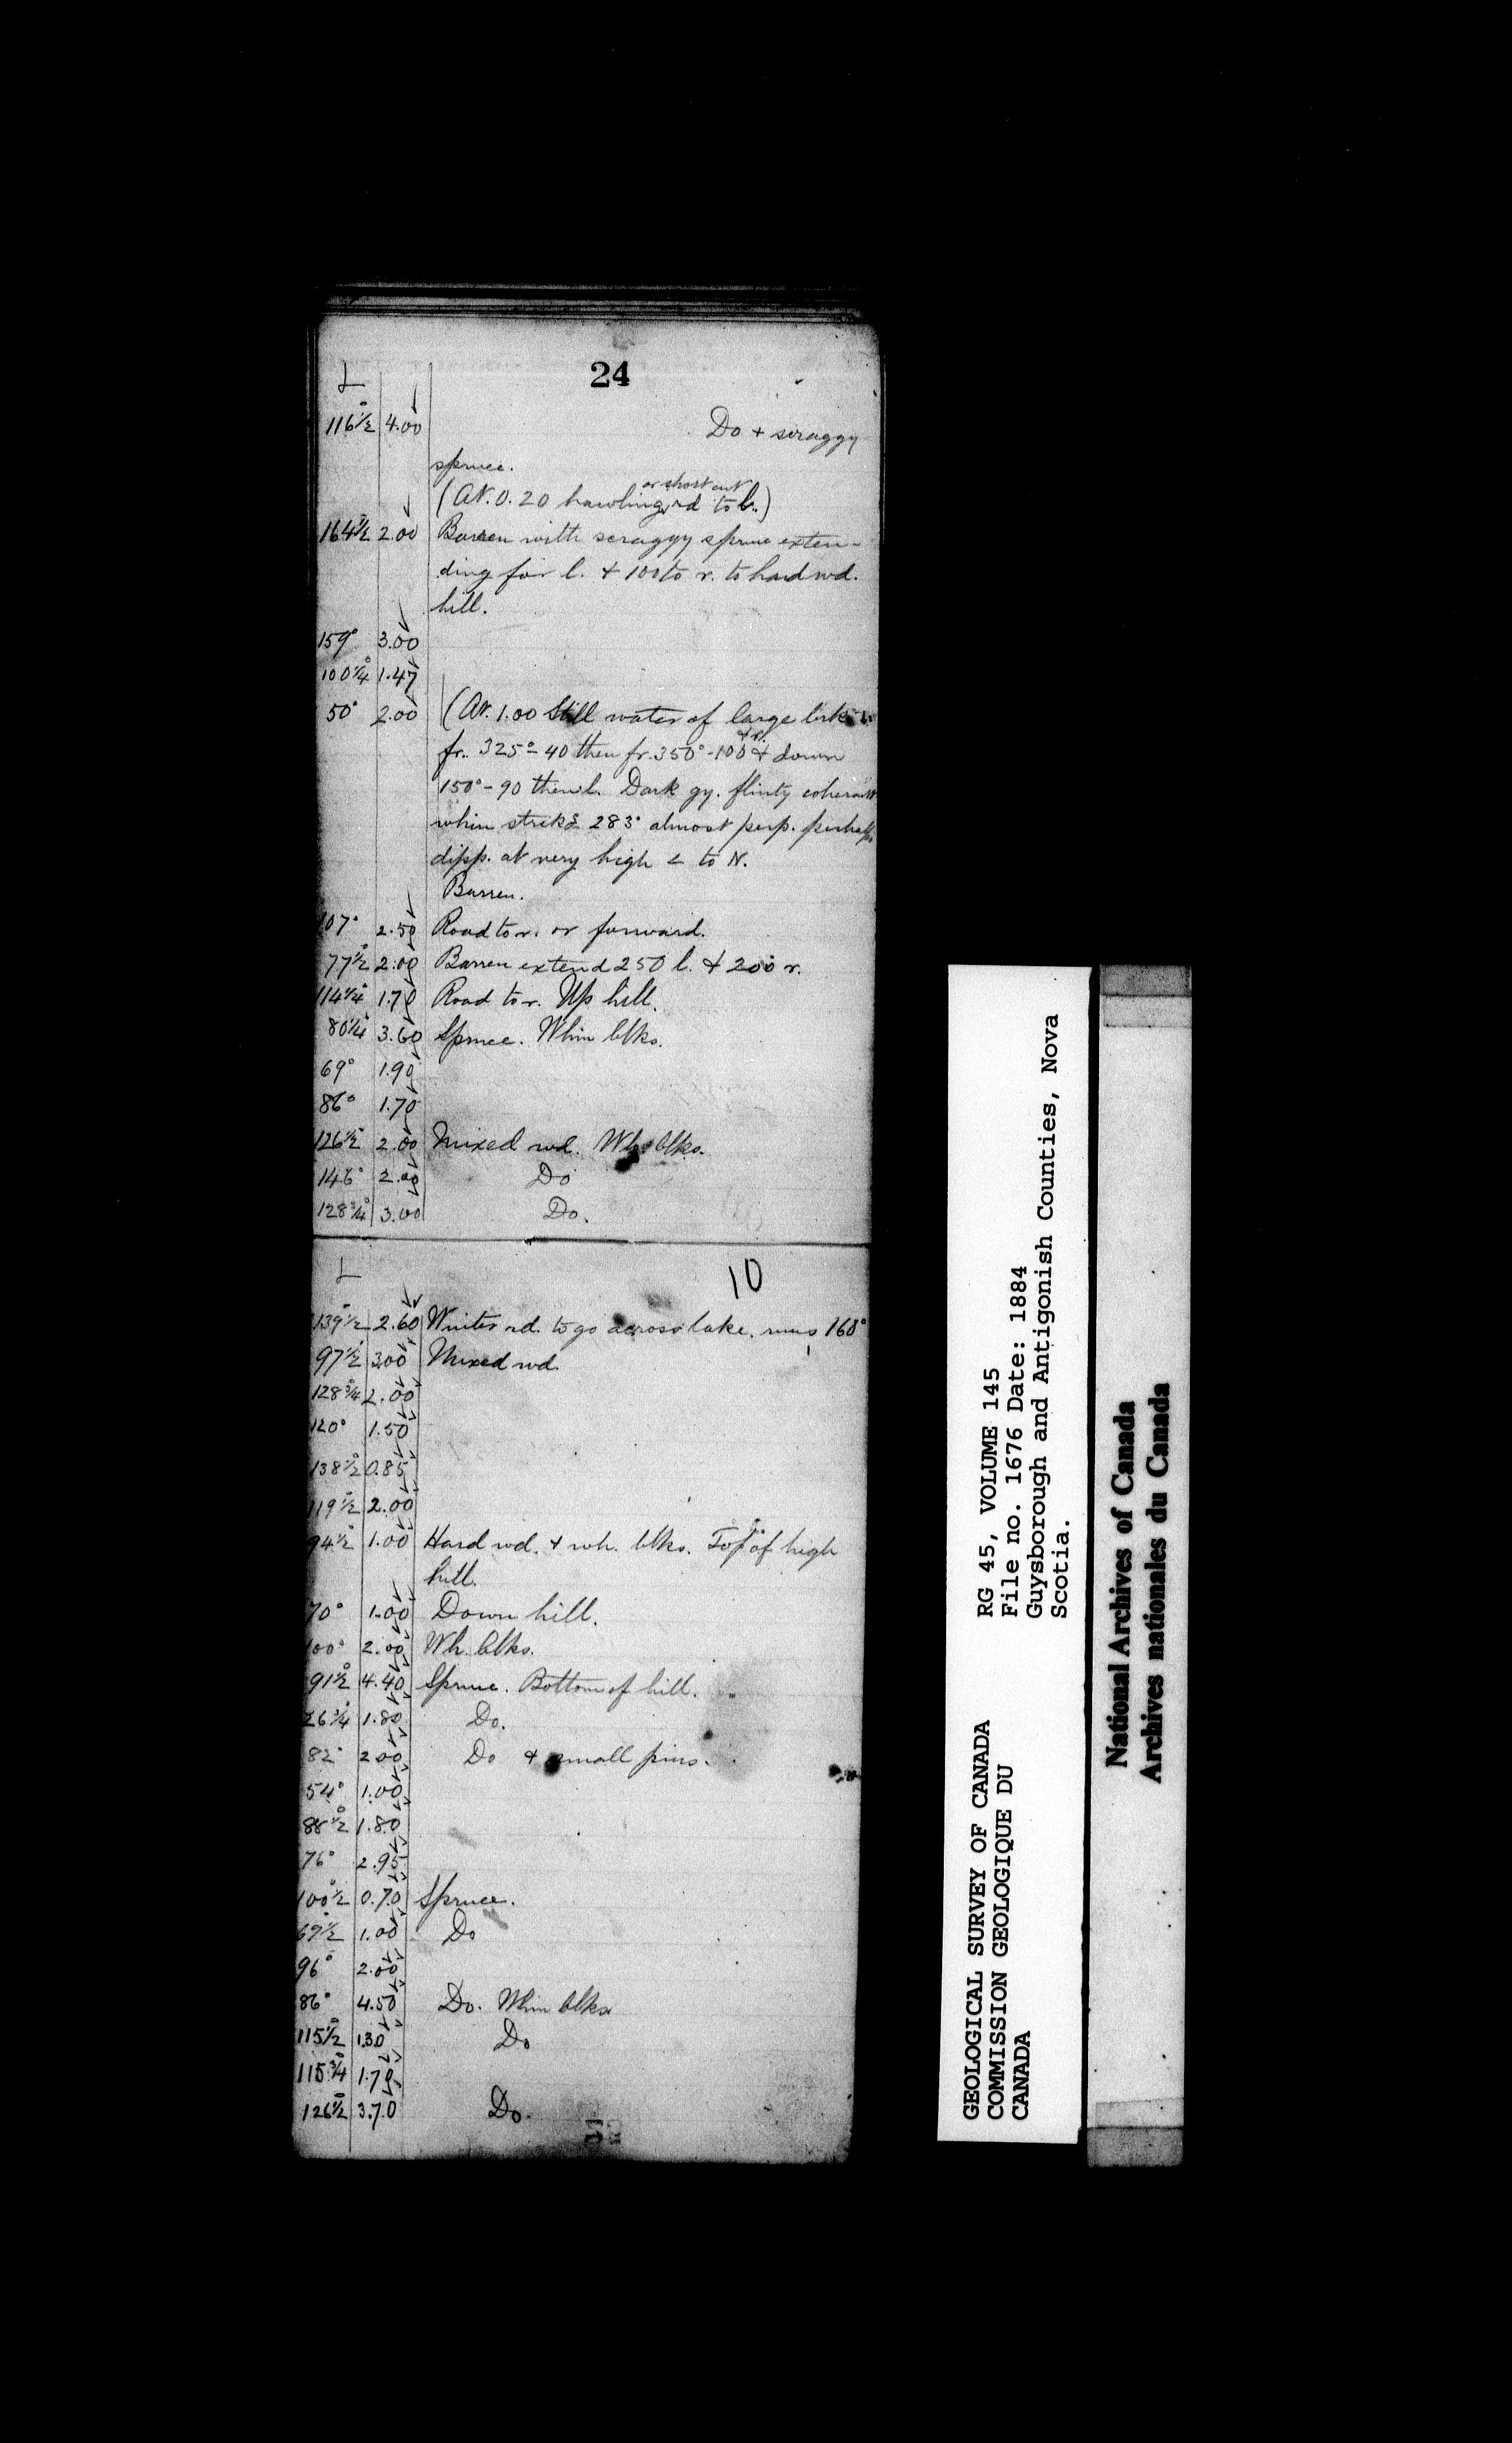 24
116½° 4.00 Do + scraggy
spruce.
or short cut
(At. 0.20 hawling rd to l.)
164½° 2.00 Barren with scraggy spruce exten-
ding far l. + 100 to r. to hard wd.
hill.
159° 3.00
100¼° 1.47
50° 2.00 (At. 1.00 Still water of large
fr. 325° - 40 then fr. 350° - 100 & down
150° - 90 then l. Dark gy. flinty coherent
whin strikg 283° almost perp. perhaps
dipp. at very high ∠ to N.
Barren.
107° 2.50 Road to r. or forward.
77½° 2.00 Barren extend 250 l. + 200 r.
114¼° 1.70 Road to r. Up hill.
80¼° 3.60 Spruce. Whin blks.
69° 1.90
86° 1.70
126½° 2.00 Mixed wd. Wh. blks.
146° 2.00 Do
128¾° 3.00 Do.
10
139½° 2.60 Winter rd. to go across lake. runs 160°
97½° 3.00 Mixed wd.
128¾° 2.00
120° 1.50
138½° 0.85
119½° 2.00
94½° 1.00 Hard wd. + wh. blks. Top of high
hill.
70° 1.00 Down hill.
100° 2.00 Wh. blks.
91½° 4.40 Spruce. Bottom of hill.
26¾° 1.80 Do.
82° 2.00 Do + small pins.
54° 1.00
88½° 1.80
76° 2.95
100½° 0.70 Spruce.
69½° 1.00 Do
96° 2.00
86° 4.50 Do. Whin blks
115½° 1.30 Do
115¾° 1.70
126½° 3.70 Do.
GEOLOGICAL SURVEY OF CANADA
COMMISSION GEOLOGIQUE DU
CANADA
RG 45, VOLUME 145
File no. 1676 Date: 1884
Guysborough and Antigonish Counties, Nova
Scotia.
National Archives of Canada
Archives nationales du Canada